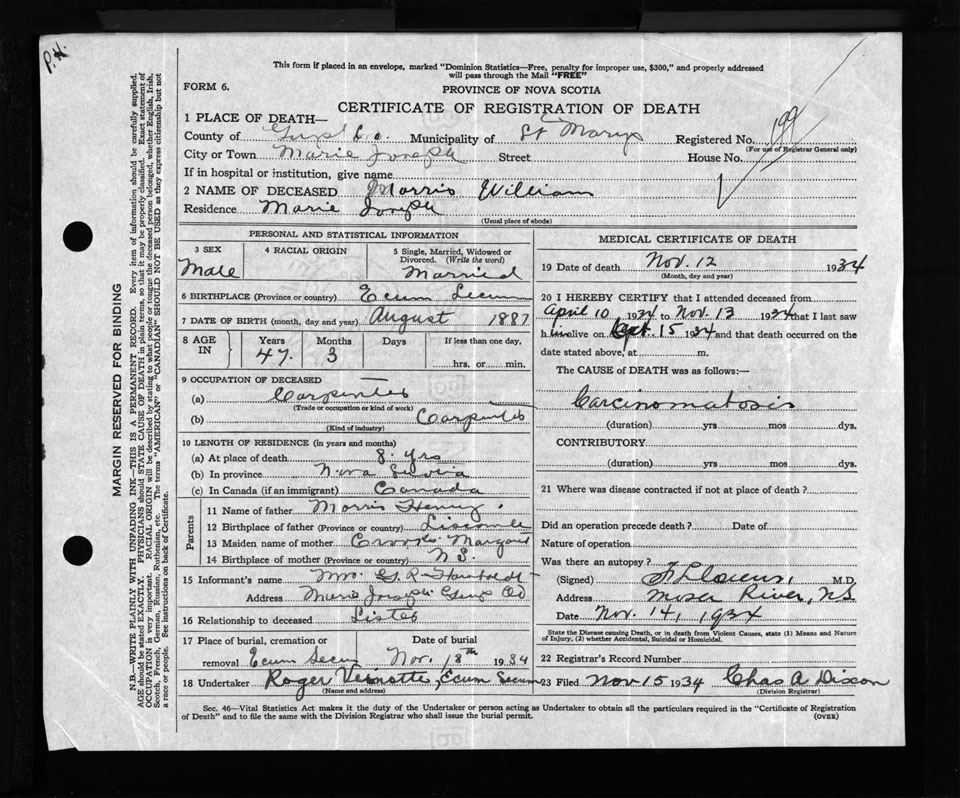 P.H.
This form if placed in an envelope, marked "Dominion Statistics—Free, penalty for improper use, $300," and properly addressed
will pass through the Mail "FREE"
FORM 6.
PROVINCE OF NOVA SCOTIA
CERTIFICATE OF REGISTRATION OF DEATH
1 PLACE OF DEATH—
County of Guys Co. Municipality of St Marys Registered No. 199
(For use of Registrar General only)
City or Town Marie Joseph Street House No.
If in hospital or institution, give name
2 NAME OF DECEASED Morris William
Residence Marie Joseph
(Usual place of abode)
PERSONAL AND STATISTICAL INFORMATION
3 SEX
Male
4 RACIAL ORIGIN
5 Single, Married, Widowed or
Divorced. (Write the word)
Married
6 BIRTHPLACE (Province or country) Ecum Secum
7 DATE OF BIRTH (month, day and year) August 1887
8 AGE
IN
Years Months Days If less than one day,
47. 3
hrs. or min.
9 OCCUPATION OF DECEASED
(a) Carpenter
(Trade or occupation or kind of work)
(b) Carpenter
(Kind of industry)
10 LENGTH OF RESIDENCE (in years and months)
(a) At place of death 8. yrs
(b) In province Nova Scotia
(c) In Canada (if an immigrant) Canada
Parents
11 Name of father Morris Henry
12 Birthplace of father (Province or country) Liscomb
13 Maiden name of mother Crooks Margaret
14 Birthplace of mother (Province or country) N S.
15 Informant's name Mrs. G. R.
Address Marie Joseph Guys Co
16 Relationship to deceased Sister
17 Place of burial, cremation or
removal Ecum Secum
Date of burial
Nov. 18th 1934
18 Undertaker Roger , Ecum Secum
(Name and address)
MEDICAL CERTIFICATE OF DEATH
19 Date of death Nov. 12 1934
(Month, day and year)
20 I HEREBY CERTIFY that I attended deceased from
April 10, 1934 to Nov. 13 1934 that I last saw
him alive on Sept. 15 1934 and that death occurred on the
date stated above, at m.
The CAUSE of DEATH was as follows:—
Carcinomatosis
(duration) yrs mos dys.
CONTRIBUTORY
(duration) yrs mos dys.
21 Where was disease contracted if not at place of death?
Did an operation precede death? Date of
Nature of operation
Was there an autopsy?
(Signed) M.D.
Address Moser River, N.S
Date Nov. 14, 1934
State the Disease causing Death, or in death from Violent Causes, state (1) Means and Nature
of Injury, (2) whether Accidental, Suicidal or Homicidal.
22 Registrar's Record Number
23 Filed Nov 15 1934 Chas A Dixon
(Division Registrar)
Sec. 46—Vital Statistics Act makes it the duty of the Undertaker or person acting as Undertaker to obtain all the particulars required in the "Certificate of Registration
of Death" and to file the same with the Division Registrar who shall issue the burial permit.
(OVER)
MARGIN RESERVED FOR BINDING
N.B.—WRITE PLAINLY WITH UNFADING INK—THIS IS A PERMANENT RECORD. Every item of information should be carefully supplied.
AGE should be stated EXACTLY. PHYSICIANS should STATE CAUSE OF DEATH in plain terms, so that it may be properly classified. Exact statement of
OCCUPATION is very important. RACIAL ORIGIN will be described by stating to what people or tongue the deceased person belonged, whether English, Irish,
Scotch, French, German, Russian, Ruthenian, etc. The terms "AMERICAN" or "CANADIAN" SHOULD NOT BE USED as they express citizenship but not
a race or people. See instructions on back of Certificate.